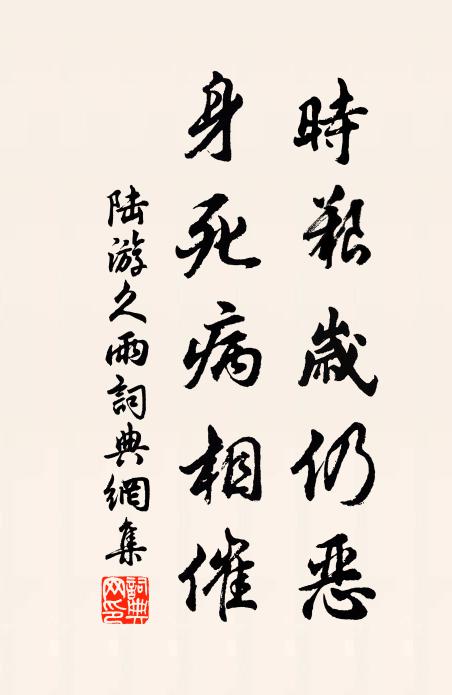 時艱歲仍惡
身死病相催
陆游久雨詞典網集
詞典网印